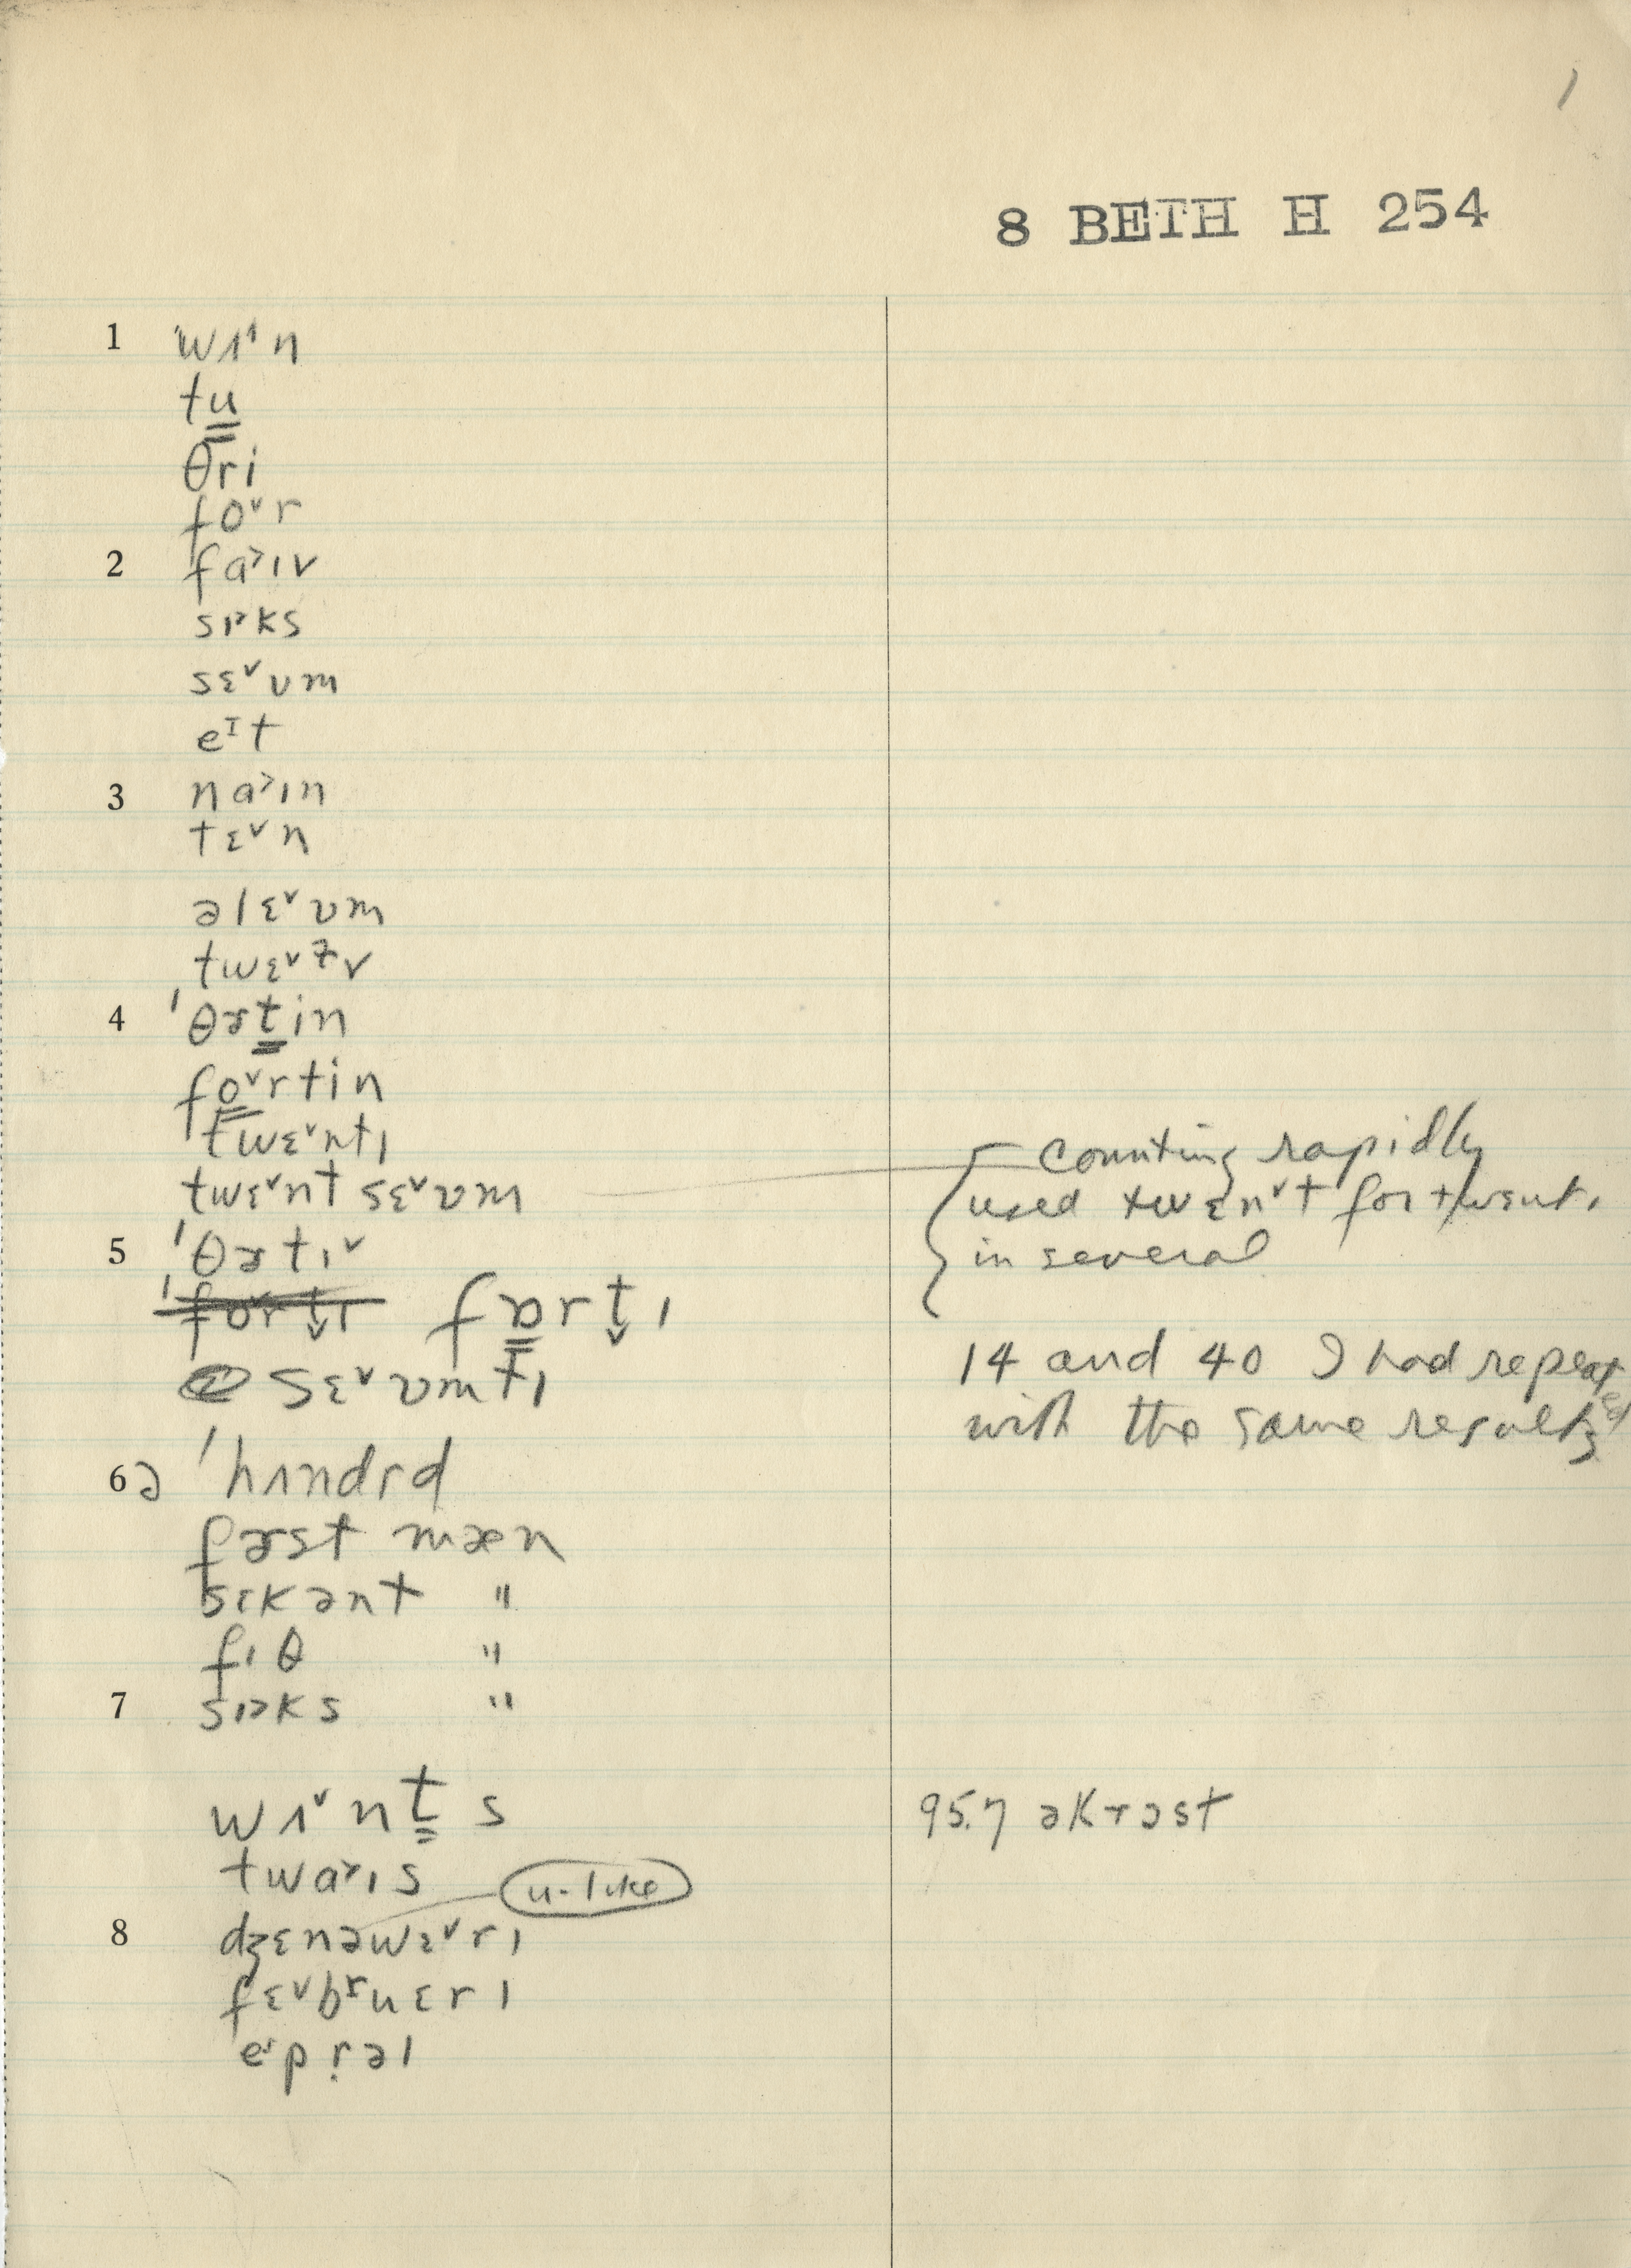 1
8 BETH H 254
1 ˈwʌ˄n
tu̳
θri
fo˅r
2 fa˃ɪv
sɪ˃ks
sɛ˅vm
eᴵt
3 na˃ɪn
tɛ˅n
əlɛ˅vm
twɛ˅ɫv
4 ˈθɚt̳in
fo̳˅rtin
twɛ˅ntɪ
twɛ˅nt sɛ˅vm
Counting rapidly
used twɛn˅t for twent.
in several
5 ˈθɚtɪ˅
ˈfo˅rt̬ɪ fɒ̳rt̬ɪ
14 and 40 I had repeated
with the same results
sɛ˅vmtɪ
6 ə ˈhʌndrd
fɚst mæn
sɛkənt "
fɪθ "
7 sɪ˃ks "
wʌ˅nt̳s
95.7 əkrɔst
twa˃ɪs
u-like
8 dʒɛnəwɛ˅rɪ
fɛ˅bʳuɛrɪ
eᶦpr̩əl